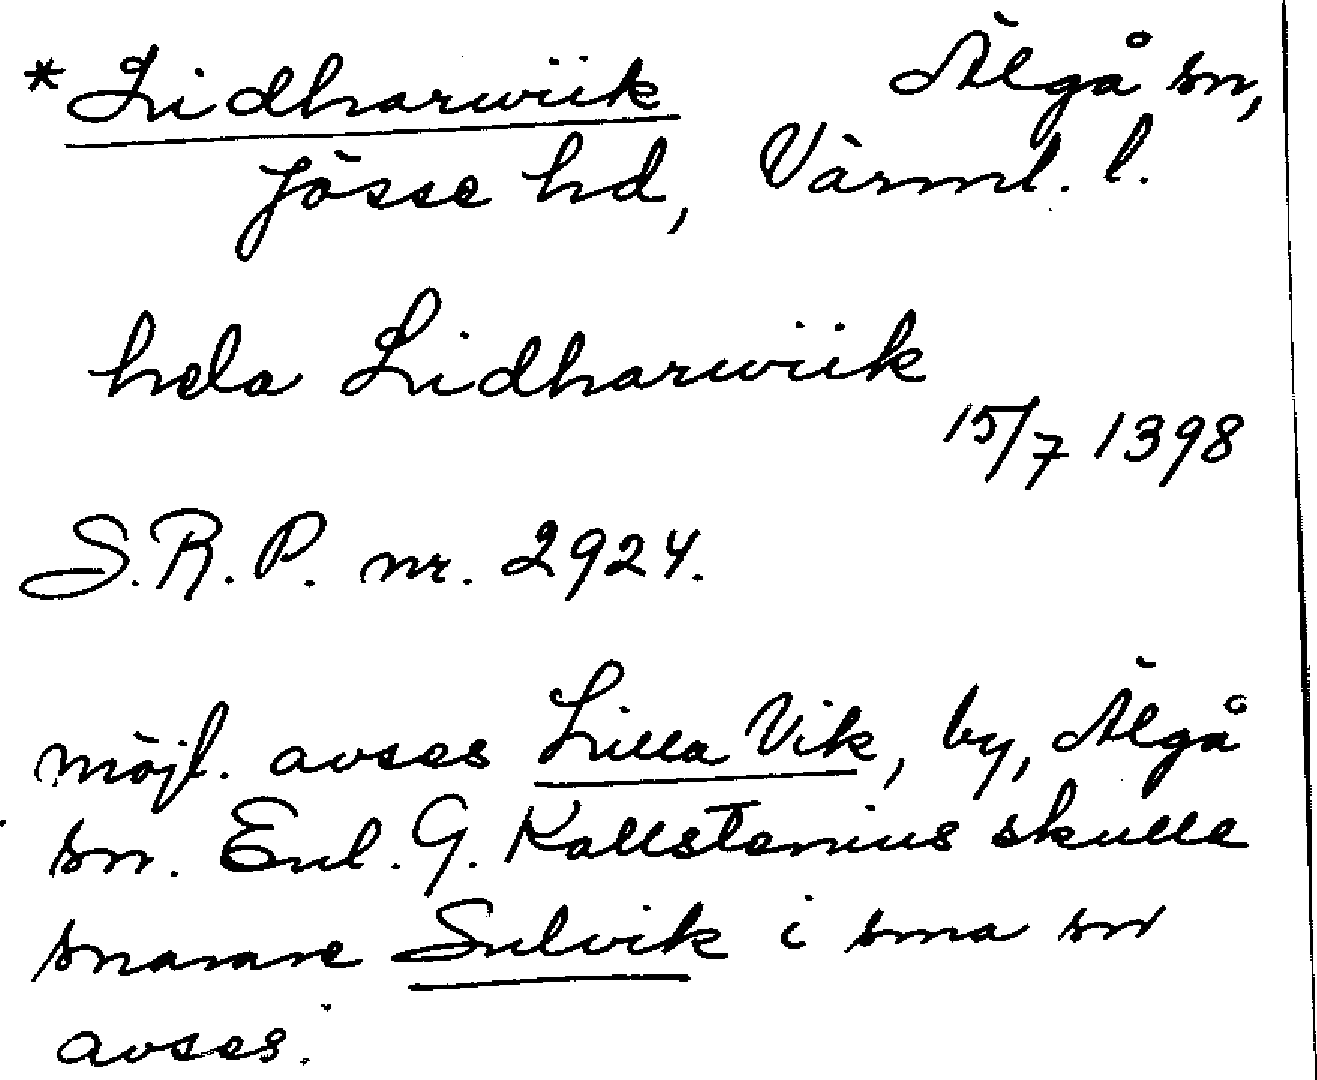 *Lidharwiik Älgå sn,
Jösse hd, Värml. l.
hela Lidharwiik
15/7 1398
S.R.P. nr. 2924.
möjl. avses Lilla Vik, by, Älgå
sn. Enl. G. Kallstenius skulle
snarare Sulvik i sma sn
avses.